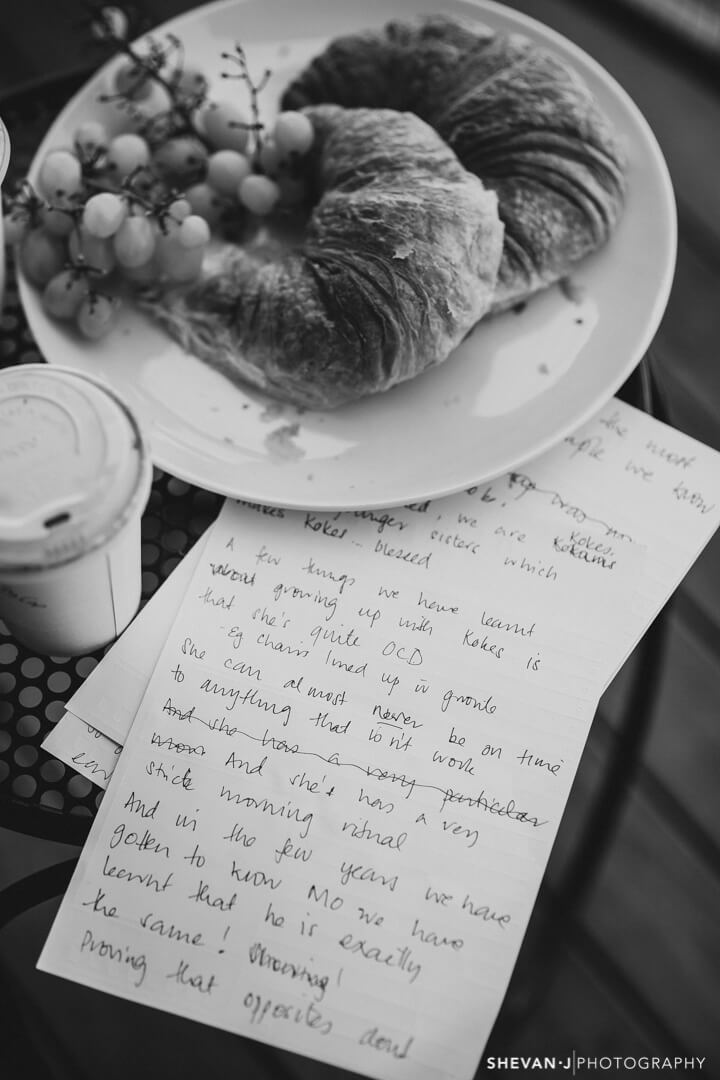 the most
we know
we are Kokes,
younger sisters which
makes Kokes... blessed
A few things we have learnt
about growing up with Kokes is
that she's quite OCD
Eg chairs lined up in
she can almost never be on time
to anything that isn't work
And she has a very particular
And she's has a very
strict morning ritual
And in the few years we have
gotten to know Mo we have
learnt that he is exactly
the same!
Proving that opposites dont
SHEVAN·J|PHOTOGRAPHY